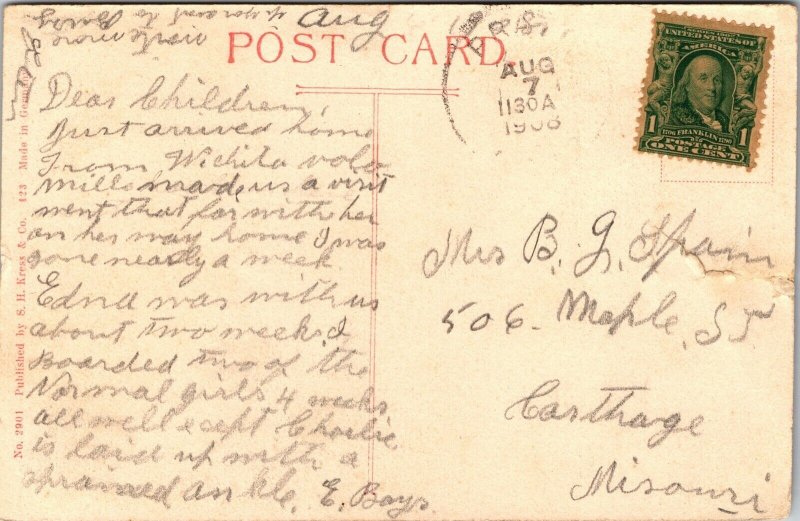 POST CARD.
Aug
AUG
7
1130A
1908
UNITED STATES OF
AMERICA
1 1706 FRANKLIN 1790 1
POSTAGE
ONE CENT
Dear Children,
Just arrived home
From Wichita vola
Mills made us a visit
went that far with her
on her way home I was
gone nearly a week
Edna was with us
about two weeks I
Boarded two of the
Normal girls 4 weeks
all well except Charlie
is laid up with a
sprained ankle, E. Bays
Mrs B. J. Spain
506. Maple. ST
Carthage
Misouri
No. 2901 Published by S. H. Kress & Co. 123 Made in Germany